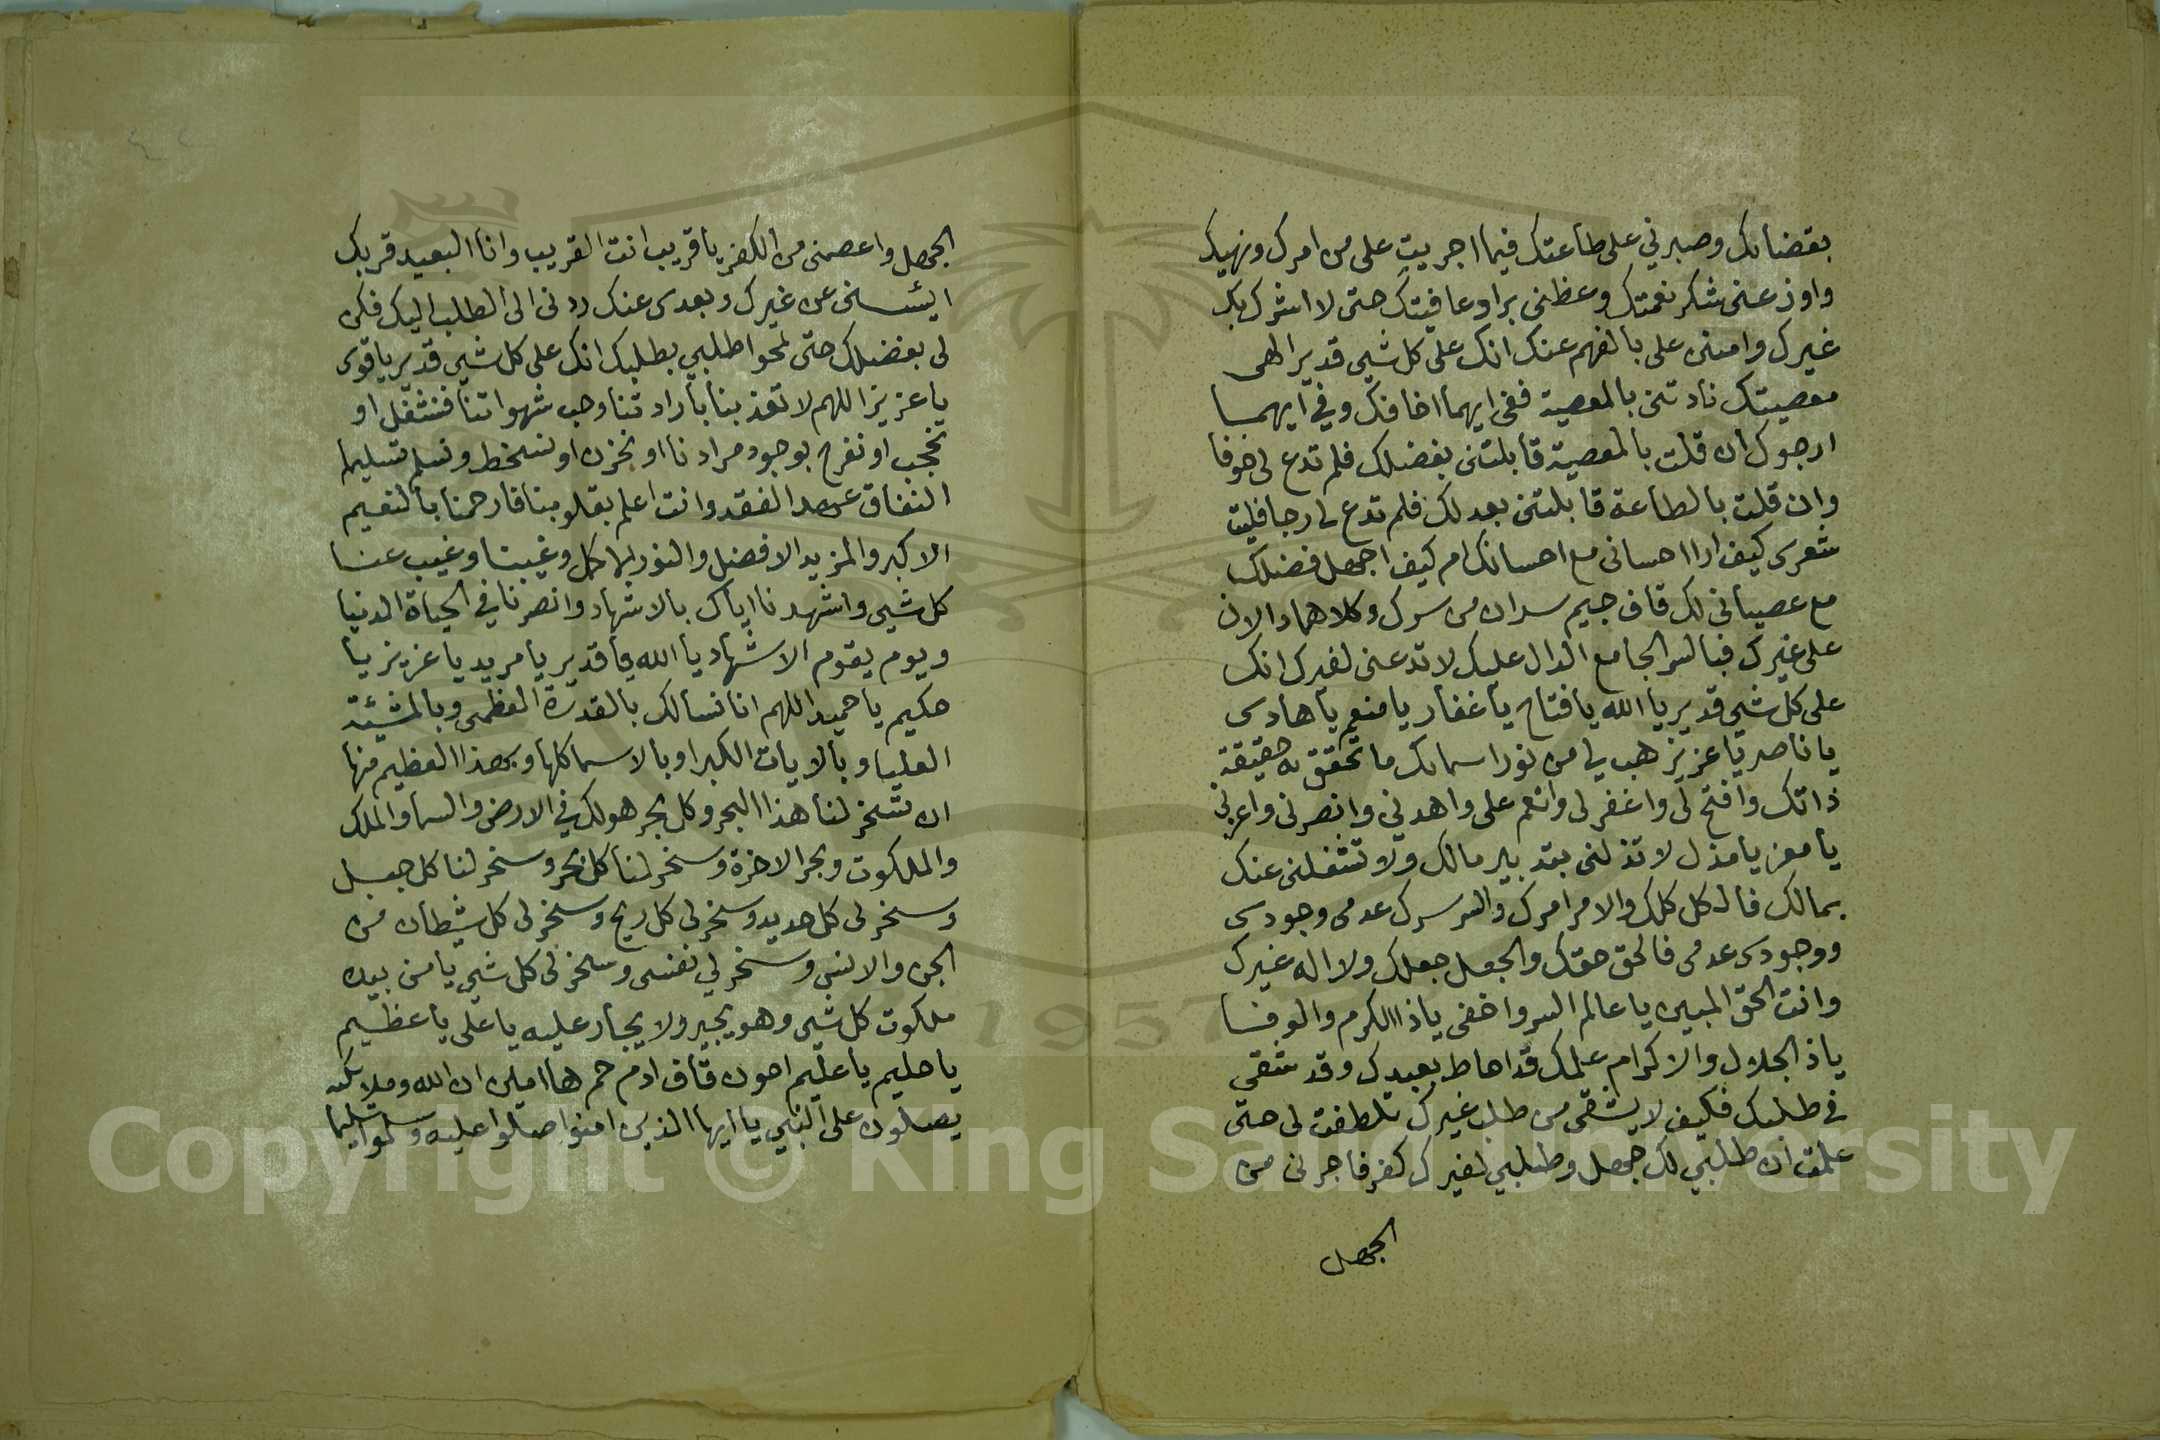 بقضائك وصبرني على طاعتك فيما اجريت على من امرك ونهيك
واوزعنى شكر نعمتك وغطنى بردا عافيتك حتى لا اشرك بك
غيرك وامنن على بالفهم عنك انك على كل شيى قدير الهى
معصيتك نادتنى بالمعصية ففى ايهما اخافك وفي ايهمسا
ارجوك ان قلت بالمعصية قابلتنى بفضلك فلم تدع لى خوفا
وان قلت بالطاعة قابلتنى بعدلك فلم تدع لى رجا فليت
شعرى كيف ارا احسانى مع احسانك ام كيف اجهل فضلك
مع عصيانى لك قاف جيم سران من سرك وكلاهما دالان
على غيرك فبالسر الجامع الدال عليك لا تدعنى لغيرك انك
على كل شى قدير يا الله يا فتاح يا غفار يا منعم يا هادى
يا ناصر يا عزيز هب لى من نور اسمائك ما تحقق به حقيقة
ذاتك وافتح لى واغفر لى وانعم على واهدني وانصرنى واعزني
يا معز يا مذل لا تذلنى بتدبير مالك ولا تشغلنى عنك
بمالك فالكل كلك والامر امرك والسر سرك عدمى وجودى
ووجودى عدمى فالحق حقك والجعل جعلك ولا اله غيرك
وانت الحق المبين يا عالم السر واخفى ياذا الكرم والوفا
ياذ الجلال والاكرام علمك قد احاط بعبدك وقد شقى
فى طلبك فكيف لا يشقى من طلب غيرك تلطفت لى حتى
علمت ان طلبي لك جهل وطلبي لغيرك كفر فاجرنى من
الجهل
الجهل واعصمنى من الكفر يا قريب انت القريب وانا البعيد قربك
ايئسنى عن غيرك وبعدى عنك ردنى الى الطلب اليك فكن
لى بفضلك حتى تمحوا طلبي بطلبك انك على كل شيى قدير يا قوى
يا عزيز اللهم لا تعذبنا بارادتنا وحب شهواتنا فنشغل او
نحجب او نفرح بوجود مرادنا او نحزن او نسخط ونسلم تسليما
النفاق عند الفقد وانت اعلم بقلوبنا فارحمنا بالنعيم
الاكبر والمزيد الافضل والنور الاكمل وغيبنا وغيب عنا
كل شيى واشهدنا اياك بالاشهاد وانصرنا في الحياة الدنيا
ويوم يقوم الاشهاد يا الله يا قدير يا مريد يا عزيز يا
حكيم يا حميد اللهم انا نسالك بالقدرة العظمى وبالمشيئة
العليا وبالايات الكبرا وبالاسما كلها وبهذا العظيم منها
ان تسخر لنا هذا البحر وكل بحر هولك في الارض والسما والملك
والملكوت وبحر الاخرة وسخر لنا كل بحر وسخر لنا كل جبل
وسخر لى كل حديد وسخر لى كل ريح وسخر لى كل شيطان من
الجن والانس وسخر لي نفسى وسخر لى كل شيى يا من بيده
ملكوت كل شيى وهو يجير ولا يجار عليه يا على يا عظيم
يا حليم يا عليم احون قاف ادم حم هاامين ان الله وملائكته
يصلون على النبي يا ايها الذين امنوا صلوا عليه وسلموا تسليما
Copyright © King Saud University
1957